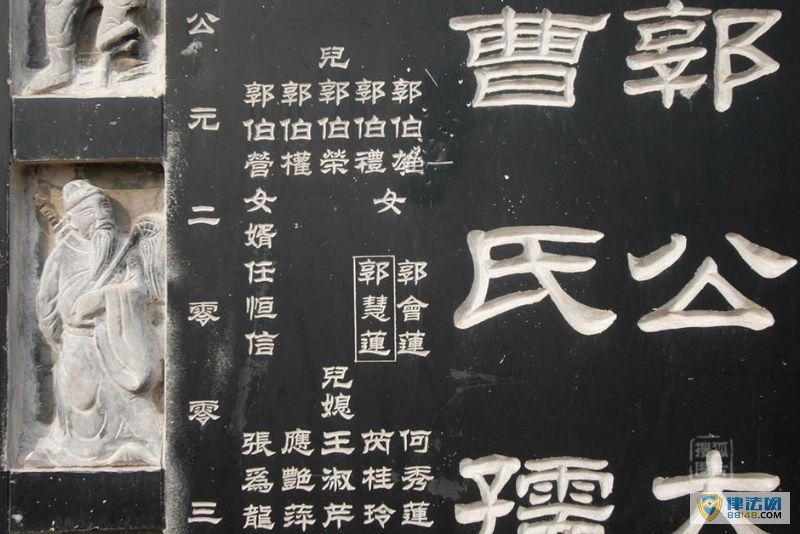 郭公大
曹氏孺
郭伯雄 郭會蓮 何秀蓮
女
郭伯禮 郭慧蓮 芮桂玲
兒郭伯榮 兒媳王淑芹
郭伯權 應艷萍
郭伯營 女婿任恒信 張爲龍
公元二零零三
搜狐
律法网
88148.com